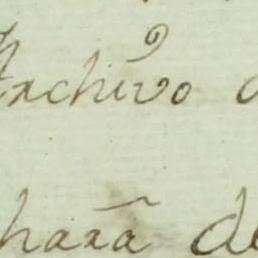 Archivo d
hara de